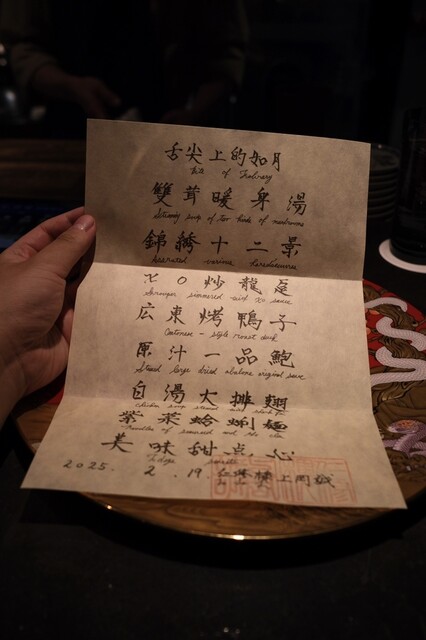 舌尖上的如月
taste of February
雙茸暖身湯
Steaming soup of two kinds of mushrooms
錦繍十二景
Assorted various
X O 炒龍趸
simmered with XO sauce
広東烤鴨子
Cantonese - style roast duck
原汁一品鮑
Stewed large dried abalone original sauce
白湯大排翅
紫菜蛤蜊麺
Noodles of seaweed and
美味甜点心
2025. 2 .19 上岡誠